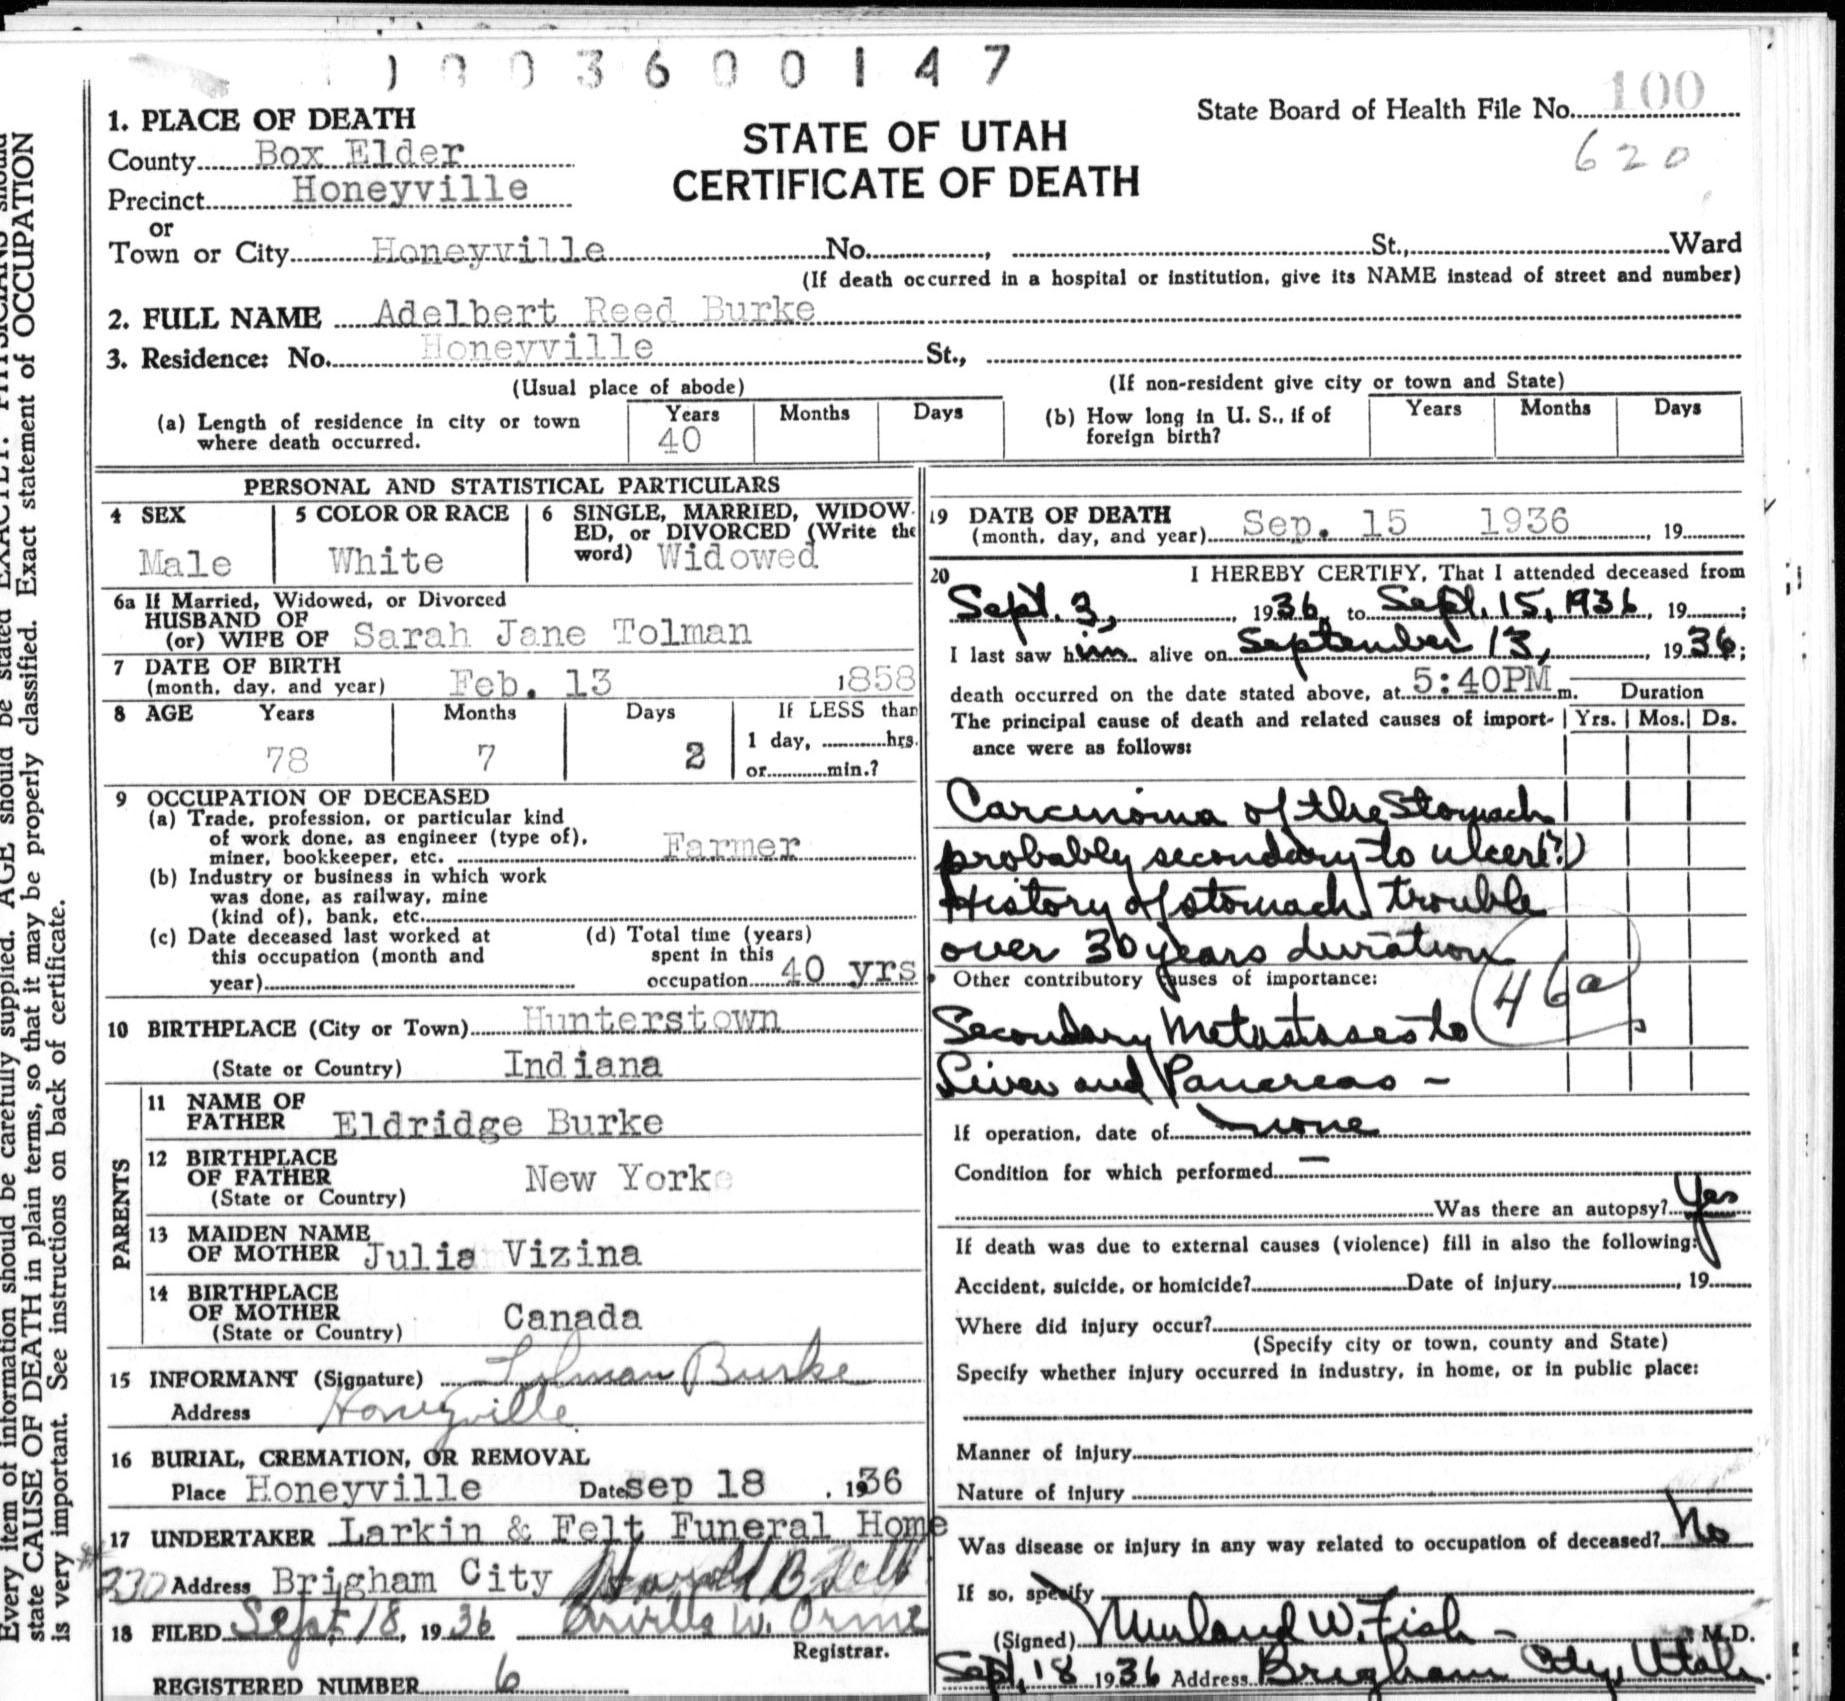 1003600147
State Board of Health File No. 100
620
STATE OF UTAH
CERTIFICATE OF DEATH
1. PLACE OF DEATH
County Box Elder
Precinct Honeyville
or
Town or City Honeyville No. , St., Ward
(If death occurred in a hospital or institution, give its NAME instead of street and number)
2. FULL NAME Adelbert Reed Burke
3. Residence: No. Honeyville St.,
(Usual place of abode) (If non-resident give city or town and State)
(a) Length of residence in city or town where death occurred. Years 40 Months Days
(b) How long in U. S., if of foreign birth? Years Months Days
PERSONAL AND STATISTICAL PARTICULARS
4 SEX Male
5 COLOR OR RACE White
6 SINGLE, MARRIED, WIDOWED, or DIVORCED (Write the word) Widowed
6a If Married, Widowed, or Divorced
HUSBAND OF
(or) WIFE OF Sarah Jane Tolman
7 DATE OF BIRTH
(month, day, and year) Feb. 13 1858
8 AGE Years Months Days If LESS than
78 7 2 1 day, hrs.
or min.?
9 OCCUPATION OF DECEASED
(a) Trade, profession, or particular kind
of work done, as engineer (type of),
miner, bookkeeper, etc. Farmer
(b) Industry or business in which work
was done, as railway, mine
(kind of), bank, etc.
(c) Date deceased last worked at
this occupation (month and
year)
(d) Total time (years)
spent in this
occupation 40 yrs.
10 BIRTHPLACE (City or Town) Hunterstown
(State or Country) Indiana
PARENTS
11 NAME OF
FATHER Eldridge Burke
12 BIRTHPLACE
OF FATHER New York
(State or Country)
13 MAIDEN NAME
OF MOTHER Julia Vizina
14 BIRTHPLACE
OF MOTHER Canada
(State or Country)
15 INFORMANT (Signature) Tolman Burke
Address Honeyville
16 BURIAL, CREMATION, OR REMOVAL
Place Honeyville Date sep 18 , 1936
17 UNDERTAKER Larkin & Felt Funeral Home
#230 Address Brigham City Harold B Felt
18 FILED Sept 18, 1936 Orville W. Orme
Registrar.
REGISTERED NUMBER 6
19 DATE OF DEATH
(month, day, and year) Sep. 15 1936 , 19
20 I HEREBY CERTIFY, That I attended deceased from
Sept. 3, , 1936, to Sept. 15, 1936, 19 ;
I last saw him alive on September 13, , 1936;
death occurred on the date stated above, at 5:40PM m. Duration
The principal cause of death and related causes of import- Yrs. Mos. Ds.
ance were as follows:
Carcinoma of the Stomach
probably secondary to ulcer (?)
History of stomach trouble
over 30 years duration
Other contributory causes of importance:
46a
Secondary Metastases to
Liver and Pancreas -
If operation, date of none
Condition for which performed –
Was there an autopsy? Yes
If death was due to external causes (violence) fill in also the following:
Accident, suicide, or homicide? Date of injury , 19
Where did injury occur?
(Specify city or town, county and State)
Specify whether injury occurred in industry, in home, or in public place:
Manner of injury
Nature of injury
Was disease or injury in any way related to occupation of deceased? No
If so, specify
(Signed) Murland W. Fish - M.D.
Sept. 18 1936 Address Brigham City, Utah.
state CAUSE OF DEATH in plain terms, so that it may be properly classified. Exact statement of OCCUPATION
is very important. See instructions on back of certificate.
Every item of information should be carefully supplied. AGE should be stated EXACTLY. PHYSICIANS should